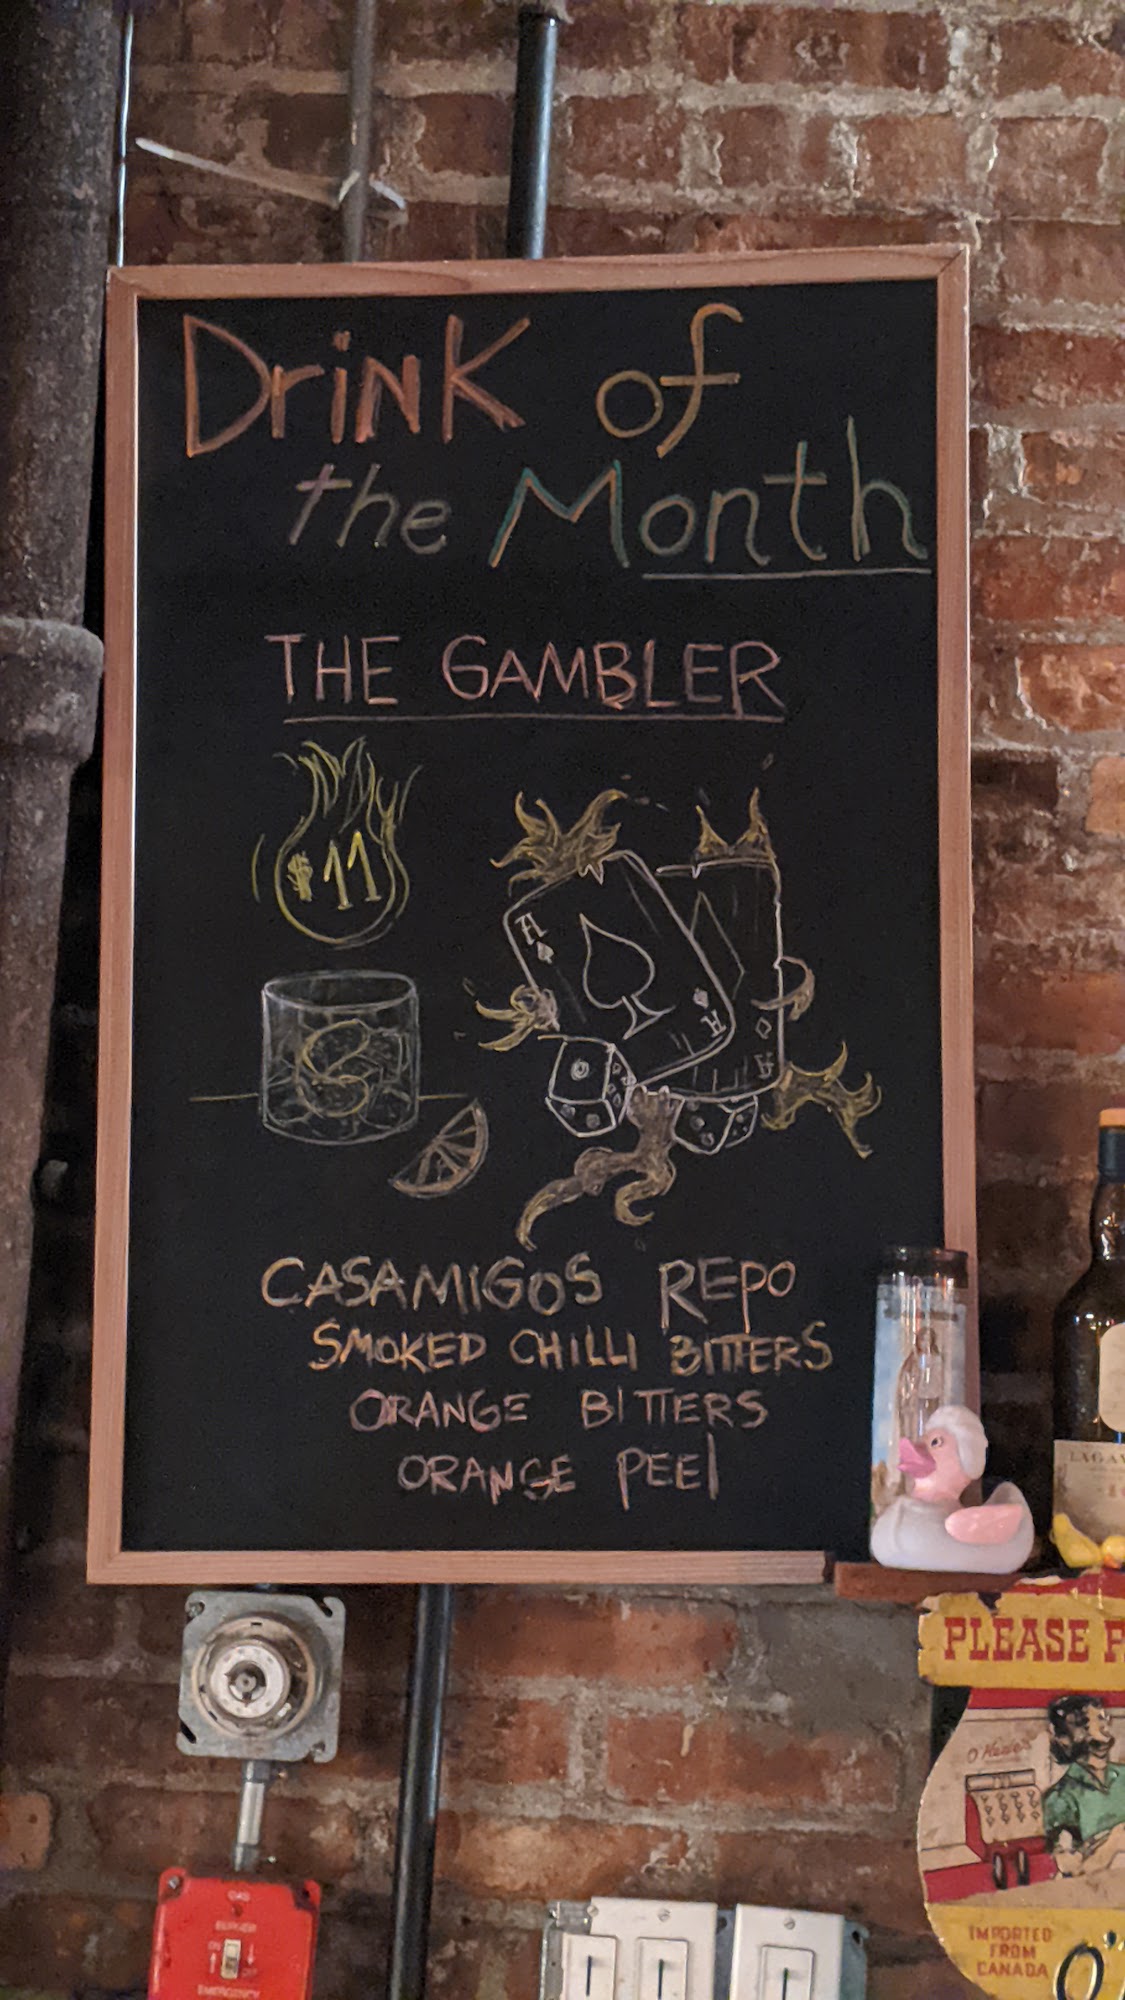 Drink of
the Month
THE GAMBLER
$11
A
A
A
CASAMIGOS REPO
SMOKED CHILLI BITTERS
ORANGE BITTERS
ORANGE PEEl
PLEASE
IMPORTED
FROM
CANADA
GAS
BURNER
ON
OFF
EMERGENCY